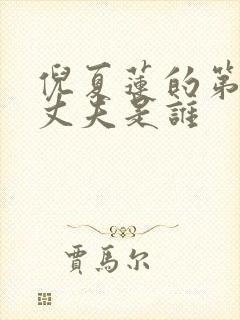 倪夏蓮的第
丈夫是誰
賈馬尔